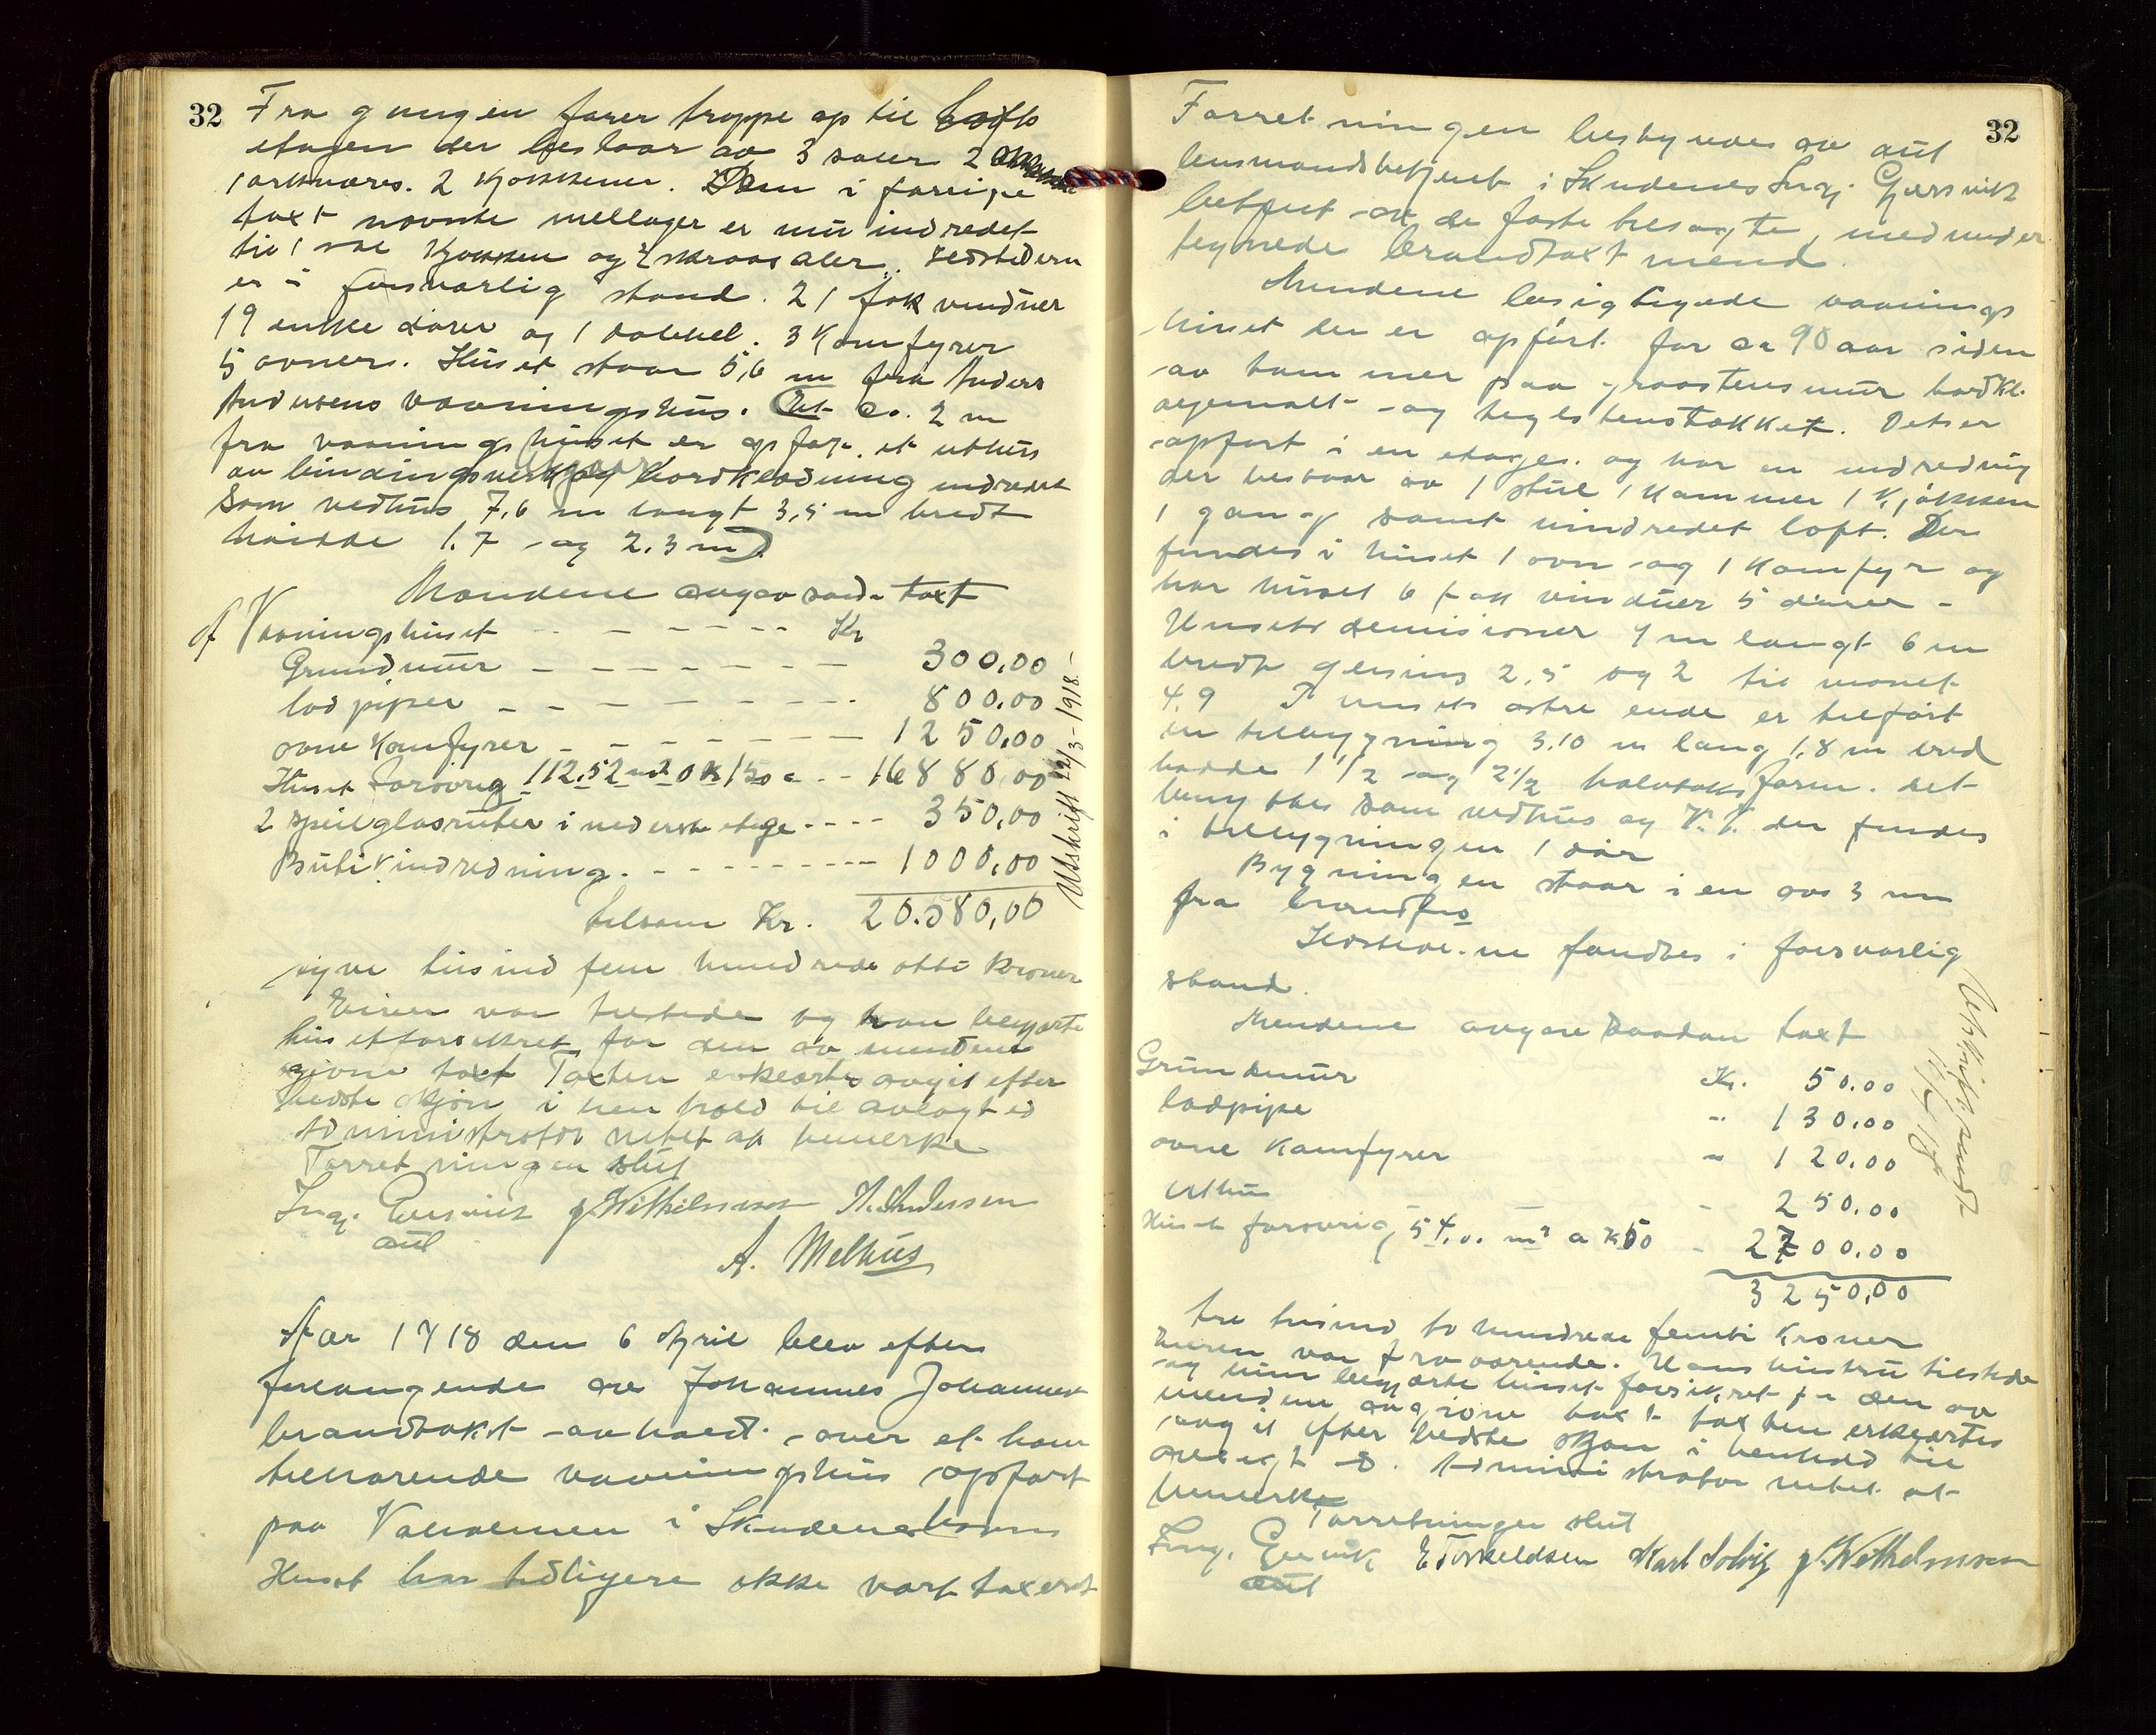 32
Fra gangen fører trappe op til Lofts
etagen der bestaar av 3 saler 2
1 arkværs. 2 kjøkkener. Den i forrige
taxt nævnte mellager er nu indredet
til 1 sal kjøkken og 2 skraasaler. Ildstederne
er i forsvarlig stand. 21 fak vinduer
19 enkle dører og 1 dobbel. 3 Komfyrer
5 ovner. Huset staar 5,6 m fra Anders
Andersens vaaningshus. Ca. 2 m
fra vaaningshuset er opført et uthus
av bindingsverk og bordklædning indredet
som vedhus 7,6 m langt 3,5 m bredt
høidde 1.7 og 2.3 m
Mændene avgav saad. taxt
Af Vaaningshuset - - - - - - Kr
Grundmur - - - - - - - 300,00
lodpiper - - - - - - - 800,00
ovne Komfyrer - - - - - - 1250,00
Huset forøvrig 112,52 m2 a Kr 150 - - 16880,00
2 speilglasruter i nederste etage - - - - 350,00
Butikindredning - - - - - - - 1000,00
tilsam Kr. 20.580,00
Utskrift 22/3-1918.
tyve tusind fem hundrede otti kroner
Eieren var tilstede og han begjærte
huset forsikret for den av mændene
givne taxt Taxten erklærtes avgit efter
bedste skjøn i henhold til avlagt ed
Administrator intet at bemerke
Forretningen slut
Ingj. Gjersvik J. Wilhelmsen A. Andersen
aut
A. Melhus
Aar 1918 den 6 April blev efter
forlangende av Johannes Johannes
brandtakst avholdt over et ham
tilhørende vaaningshus opført
paa Vaholmen i Skudeneshavn
Huset har tidligere ikke vært taxeret
32
Forretningen bestyredes av aut
lensmandsbetjent i Skudenes Ingj. Gjersvik
betjent av de faste besagte, med under
tegnede brandtaxtmænd.
Mændene besigtigede vaanings
huset der er opført for ca 90 aar siden
av tømmer paa graastensmur bordkl.
oljemalt og teglstenstækket. Det er
opført i en etage. og har en indredning
der bestaar av 1 stue 1 kammer 1 kjøkken
1 gang samt uindredet loft. Der
findes i huset 1 ovn og 1 Komfyr og
har huset 6 fak vinduer 5 dører -
Husets demisioner 9 m langt 6 m
bredt gesims 2,5 og 2 til mønet
4,9 I husets østre ende er tilført
en tilbygning 3.10 m lang 1,8 m bred
hødde 1 1/2 og 2 1/2 halvtaksform. det
benyttes som vedhus og V.K. der findes
i tilbygningen 1 dør
Bygningen staar i en avs 3 m
fra brandfrs
Ildstederne fandtes i forsvarlig
stand.
Mændene avgav saadan taxt
Grundmur Kr. 50.00
lodpipe " 130.00
ovne Komfyrer " 120.00
Uthus - 250.00
Huset forøvrig 54.0. m2 a Kr 50 - 2700.00
3250,00
Utskift sendt
11/4 18
tre tusind to hundrede femti kroner
Eieren var fraværende. Hans hustru tilstede
og hun begjærte huset forsikret for den av
mændene avgivne taxt taxten erklærtes
avgit efter bedste skjøn i henhold til
avlagt ed. Administrator intet at
bemerke
Forretningen slut
Ingj. Gjersvik E Torkeldsen Karl Solvig J. Wilhelmsen
aut